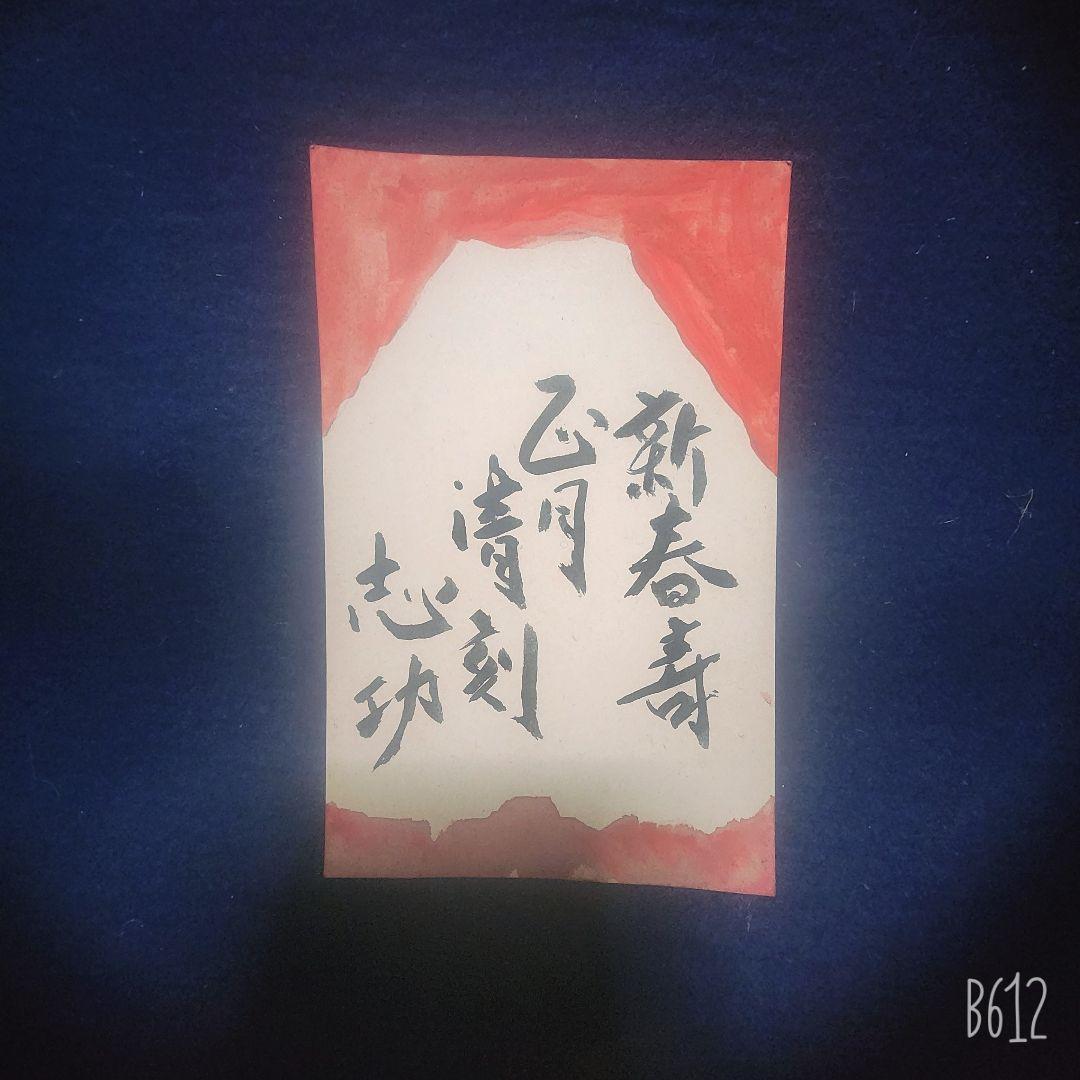 新春寿
正月
清刻
志功
B612